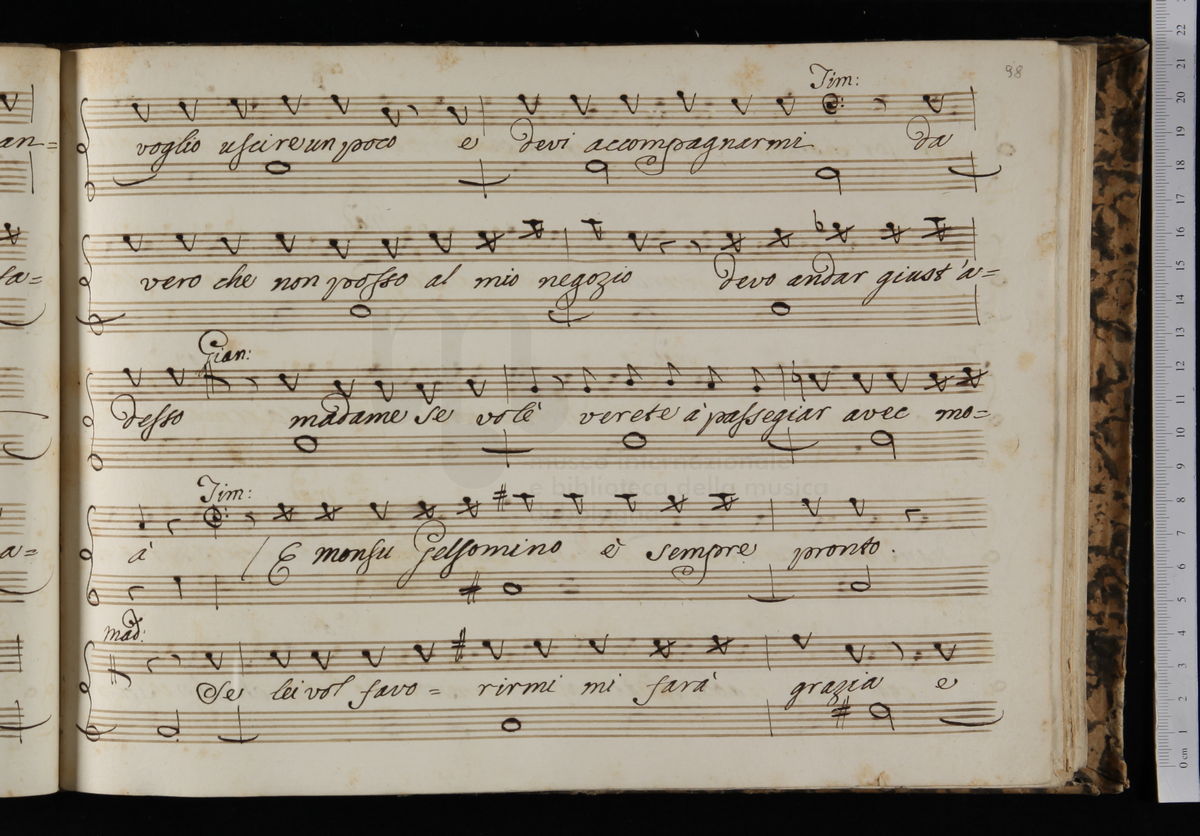 98
Tim:
voglio uscire un poco e devi accompagnarmi da
vero che non posso al mio negozio devo andar giust'a=
Gian:
desso madame se volè verete à passegiar avec mo=
Tim:
à E monsu Gelsomino è sempre pronto.
mad:
Se lei vol favo= rirmi mi farà grazia e
museo internazionale
e biblioteca della musica